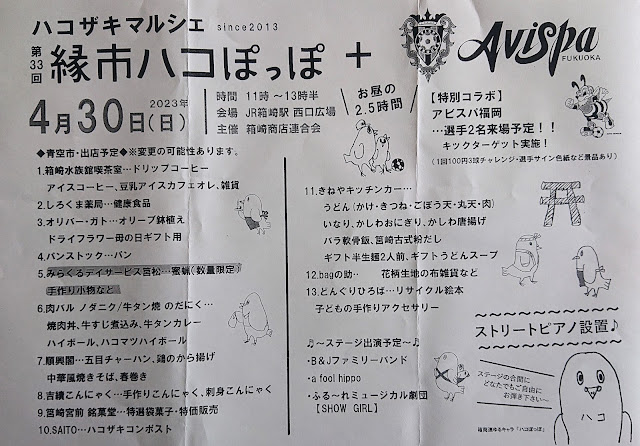 ハコザキマルシェ since2013
第33回 縁市ハコぽっぽ + AVISPA FUKUOKA
4月30日(日) 2023年
時間 11時～13時半
会場 JR箱崎駅 西口広場
主催 箱崎商店連合会
お昼の2.5時間
【特別コラボ】
アビスパ福岡
…選手2名来場予定！！
キックターゲット実施！
(1回100円3球チャレンジ・選手サイン色紙など景品あり)
◆青空市・出店予定◆※変更の可能性あります。
1.箱崎水族館喫茶室…ドリップコーヒー
アイスコーヒー、豆乳アイスカフェオレ、雑貨
2.しろくま薬局…健康食品
3.オリバー・ガト…オリーブ鉢植え
ドライフラワー母の日ギフト用
4.パンストック…パン
5.みらくるデイサービス筥松…蜜蝋(数量限定)
手作り小物など
6.肉バル ノダニク/牛タン焼 のだにく…
焼肉丼、牛すじ煮込み、牛タンカレー
ハイボール、ハコマツハイボール
7.順興閣…五目チャーハン、鶏のから揚げ
中華風焼きそば、春巻き
8.吉積こんにゃく…手作りこんにゃく、刺身こんにゃく
9.筥崎宮前 銘菓堂…特選袋菓子・特価販売
10.SAITO…ハコザキコンポスト
11.きねやキッチンカー…
うどん(かけ・きつね・ごぼう天・丸天・肉)
いなり、かしわおにぎり、かしわ唐揚げ
バラ軟骨飯、筥崎古式粉だし
ギフト半生麺2人前、ギフトうどんスープ
12.bagの助‥ 花柄生地の布雑貨など
13.どんぐりひろば…リサイクル絵本
子どもの手作りアクセサリー
♫～ステージ出演予定～♪
・B&Jファミリーバンド
・a fool hippo
・ふる～れミュージカル劇団
【SHOW GIRL】
～～～～～～～～～～～～
ストリートピアノ設置♪
ステージの合間に
どなたでもご自由に
お弾き下さい～
ハコ
箱商連ゆるキャラ「ハコぽっぽ」